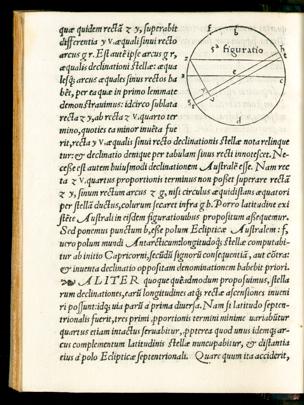 quæ quidem rectā z y, superabit
differentia y v. æquali sinui recto
arcus g r. Est aute ipse arcus g r,
æqualis declinationi stellæ: æqua
lesq́; arcus æquales sinus rectos ha
bēt, per ea quæ in primo lemmate
demonstrauimus: idcirco sublata
recta z y, ab recta z v. quarto ter
mino, quoties ea minor inuēta fue
rit, recta y v. æqualis sinui recto declinationis stellæ nota relinque
tur: & declinatio denique per tabulam sinus recti innotescet. Ne-
cesse est autem huiusmodi declinationem Australē esse. Nam rec
ta z v. quartus proportionis terminus non posset superare rectā
z y, sinum rectum arcus z g, nisi circulus æquidistans æquatori
per stellā ductus, colurum secaret infra g b. Porro latitudine exi
stēte Australi in eisdem figurationibus propositum assequemur.
Sed ponemus punctum b, esse polum Eclipticæ Australem: f,
uero polum mundi Antarcticum: longitudoq́; stellæ computabi-
tur ab initio Capricorni, secūdū signorū consequentiā, aut cōtra:
& inuenta declinatio oppositam denominationem habebit priori.
ALITER quoque quod modum proposuimus, stella
rum declinationes, earū longitudines atq́; rectæ ascensiones inueni
ri possunt: idq́; uia parū a prima diuersa. Nam si latitudo septen-
trionalis fuerit, tres primi proportionis termini minime uariabūtur
quartus etiam intactus seruabitur, ppterea quod unus idemq́; ar-
cus complementum latitudinis stellæ nuncupabitur, & distantia
eius a polo Eclipticæ septentrionali. Quare quum ita acciderit,
5ᵃ figuratio
f
b
d
e
c
g